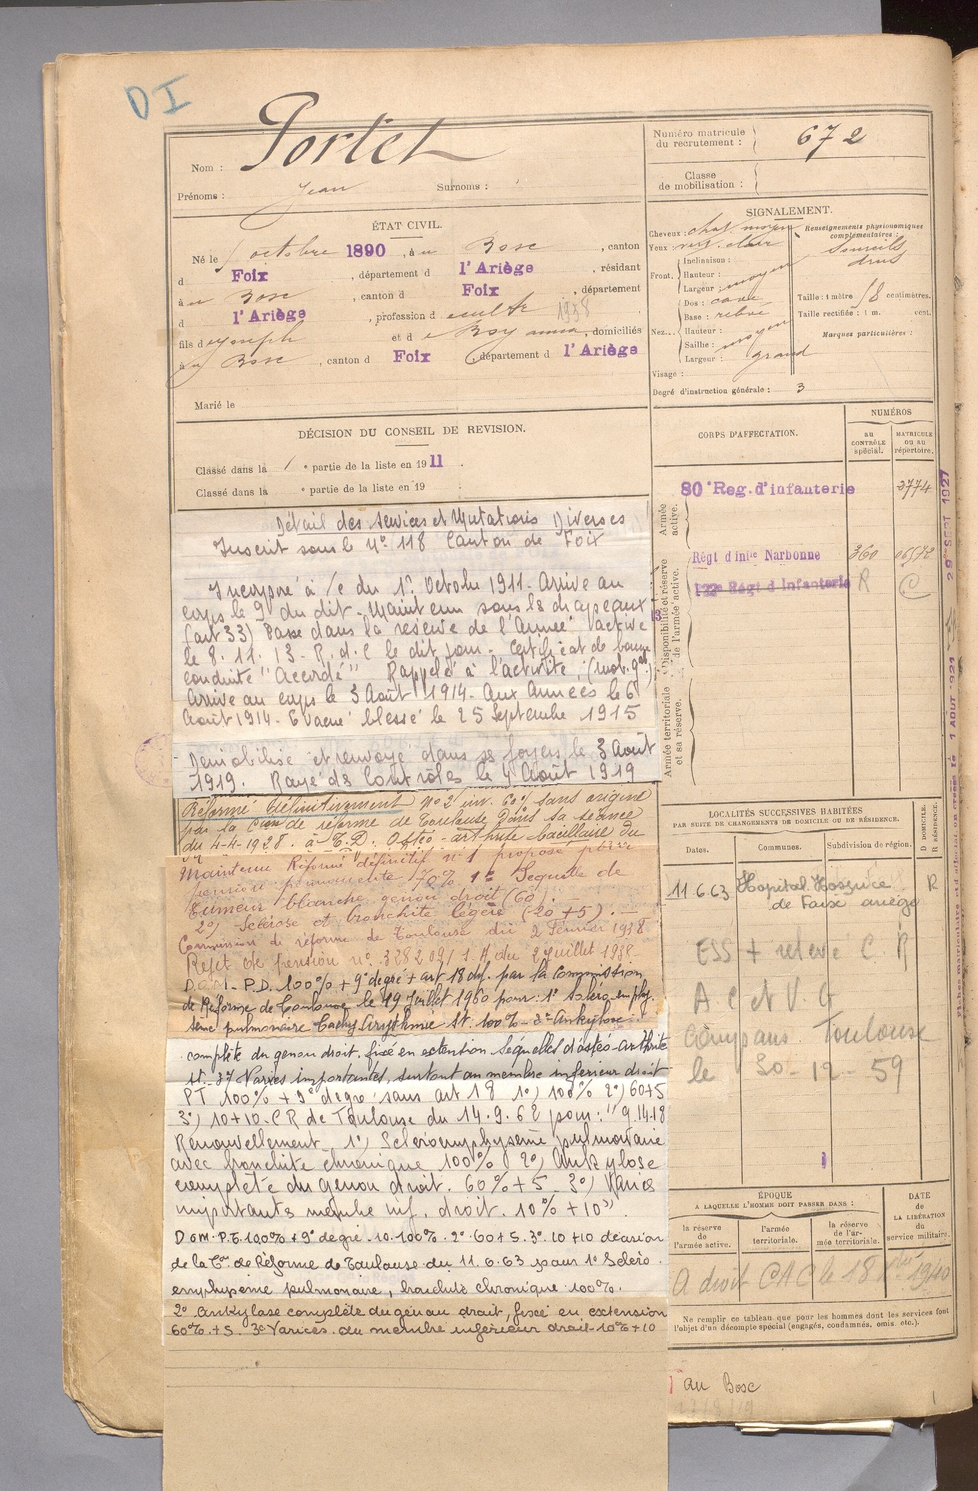 DI
Nom : Portet
Prénoms : Jean Surnoms :
Numéro matricule du recrutement : 672
Classe de mobilisation :
ÉTAT CIVIL.
Né le octobre 1890, à u Bosc, canton
d Foix, département d l'Ariège, résidant
à u Bosc, canton d Foix, département
d l'Ariège, profession d
1938
fils d Joseph et d e domiciliés
à u Bosc, canton d Foix, département d l'Ariège
Marié le
SIGNALEMENT.
Cheveux : chat. moyen
Yeux : clair
Front. Inclinaison :
Hauteur :
Largeur : moyen
Nez. Dos : cave
Base : relevé
Hauteur :
Saillie : moyen
Largeur : grand
Visage :
Renseignements physionomiques complémentaires :
Sourcils drus
Taille : 1 mètre centimètres.
Taille rectifiée : 1 m. cent.
Marques particulières :
Degré d'instruction générale : 3
DÉCISION DU CONSEIL DE REVISION.
Classé dans la 1 e partie de la liste en 1911.
Classé dans la e partie de la liste en 19 .
CORPS D'AFFECTATION.
NUMÉROS
AU CONTRÔLE spécial.
MATRICULE OU AU répertoire.
Armée active.
80e Reg. d'infanterie 2774
Disponibilité et réserve de l'armée active.
Régt d'inie Narbonne 360
122e Régt d'Infanterie R
Armée territoriale et sa réserve.
Détail des services et Mutations Diverses
Inscrit sous le No 118 Canton de Foix
Incorporé à /c du 1er Octobre 1911. Arrivé au
corps le 9 du dit. Maintenu sous les drapeaux
(art 33) Passe dans la réserve de l'Armée active
le 8. 11. 13. R. d. C le dit jour. Certificat de bonne
conduite "Accordé" Rappelé à l'activité, (mob. gal)
Arrivé au corps le 3 Août 1914. Aux Armées le 6
Août 1914. Evacué blessé le 25 Septembre 1915
Démobilisé et renvoyé dans ses foyers le 3 Août
1919. Rayé des Contrôles le 4 Août 1919
Réformé définitivement No 2 inv. 60% sans origine
par la Cion de réforme de Toulouse dans sa séance
du 4-4-1928. à Ostéo-arthrite bacillaire du
Maintenu Réformé définitif no 1 proposé pour
pension permanente 70% 1o Séquelle de
tumeur blanche genou droit (60).
2o) Sclérose et bronchite légère (20+5).
Commission de réforme de Toulouse du 2 Février 1938
Rejet de pension no du 2 juillet 1938.
P.D. 100% + 9e degré + art 18 déf. par la Commission
de Réforme de Toulouse le 19 Juillet 1960 pour : 1o Scléro-emphy-
sème pulmonaire Tachy Arythmie St. 100% - 2o Ankylose
complète du genou droit fixé en extension Séquelles d'ostéo-arthrite
St. 3o Varices importantes, surtout au membre inférieur droit
PT 100% + 9o degré sans art 18 1o) 100% 2o) 60+5
3o) 10+10. CR de Toulouse du 14.9.62 pour : "9.14.18
Renouvellement 1o) Scléroemphysème pulmonaire
avec bronchite chronique 100% 2o) Ankylose
complète du genou droit. 60% + 5 3o) Varices
importants membre inf. droit. 10% + 10"
Dom. P.T. 100% + 9o degré. 1o. 100%. 2o 60+5. 3o. 10+10 décision
de la Con de Réforme de Toulouse du 11.6.63 pour 1o Scléro.
emphysème pulmonaire, bronchite chronique 100%.
2o ankylose complète du genou droit, fixé en extension
60% + 5. 3o Varices du membre inférieur droit 10% + 10
LOCALITÉS SUCCESSIVES HABITÉES
PAR SUITE DE CHANGEMENTS DE DOMICILE OU DE RÉSIDENCE.
Dates. Communes. Subdivision de région. D DOMICILE. R RÉSIDENCE.
11.6.63 Hopital Hospice R
de Foix ariège
ESS + relevé C. R
A C et V G
Toulouse
le 30-12-59
ÉPOQUE
A LAQUELLE L'HOMME DOIT PASSER DANS :
la réserve de l'armée active.
l'armée territoriale.
la réserve de l'armée territoriale.
DATE de la LIBÉRATION du service militaire.
A droit CAC le 18 1940
Ne remplir ce tableau que pour les hommes dont les services font l'objet d'un décompte spécial (engagés, condamnés, omis etc.).
au Bosc